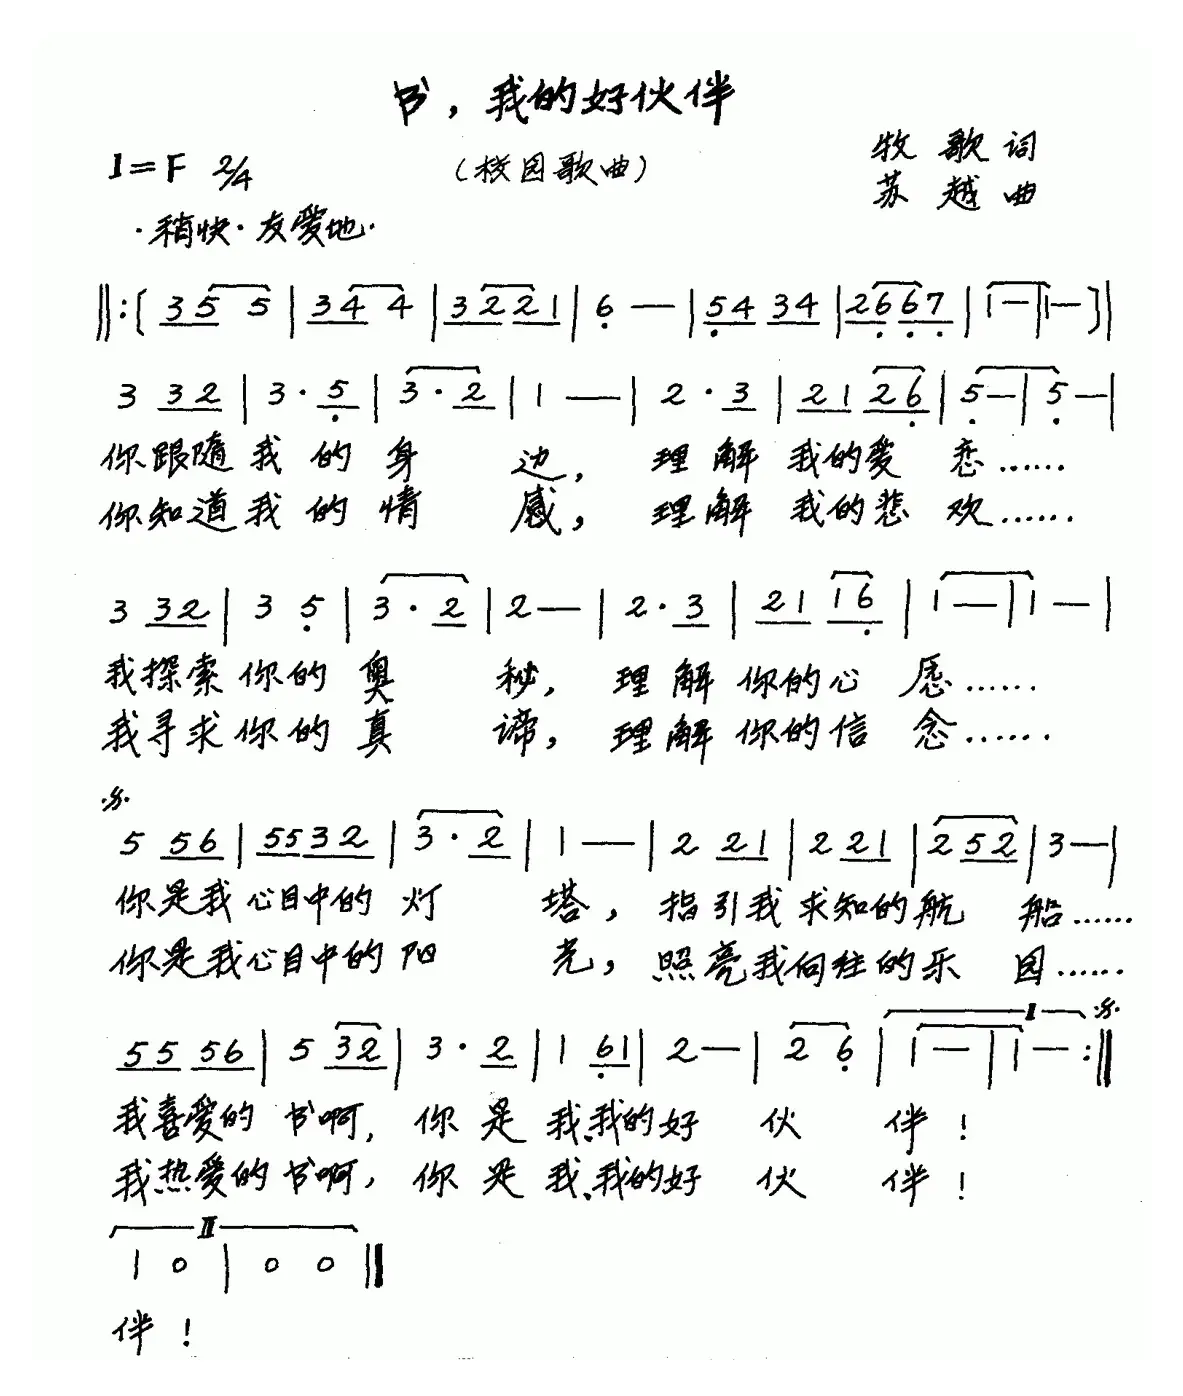 书，我的好伙伴
1=F 2/4
（校园歌曲）
牧歌词
苏越曲
·稍快·友爱地·
‖:〔3 5 5 | 3 4 4 | 3 2 2 1 | 6 — | 5 4 3 4 | 2 6 6 7 | 1 — | 1 —〕|
3 3 2 | 3 · 5 | 3 · 2 | 1 — | 2 · 3 | 2 1 2 6 | 5 — | 5 — |
你跟随我的身边，理解我的爱恋……
你知道我的情感，理解我的悲欢……
3 3 2 | 3 5 | 3 · 2 | 2 — | 2 · 3 | 2 1 1 6 | 1 — | 1 — |
我探索你的奥秘，理解你的心愿……
我寻求你的真谛，理解你的信念……
5 5 6 | 5 5 3 2 | 3 · 2 | 1 — | 2 2 1 | 2 2 1 | 2 5 2 | 3 — |
你是我心目中的灯塔，指引我求知的航船……
你是我心目中的阳光，照亮我向往的乐园……
I
5 5 5 6 | 5 3 2 | 3 · 2 | 1 6 1 | 2 — | 2 6 | 1 — | 1 — :‖
我喜爱的书啊，你是我、我的好伙伴！
我热爱的书啊，你是我、我的好伙伴！
II
1 0 | 0 0 ‖
伴！